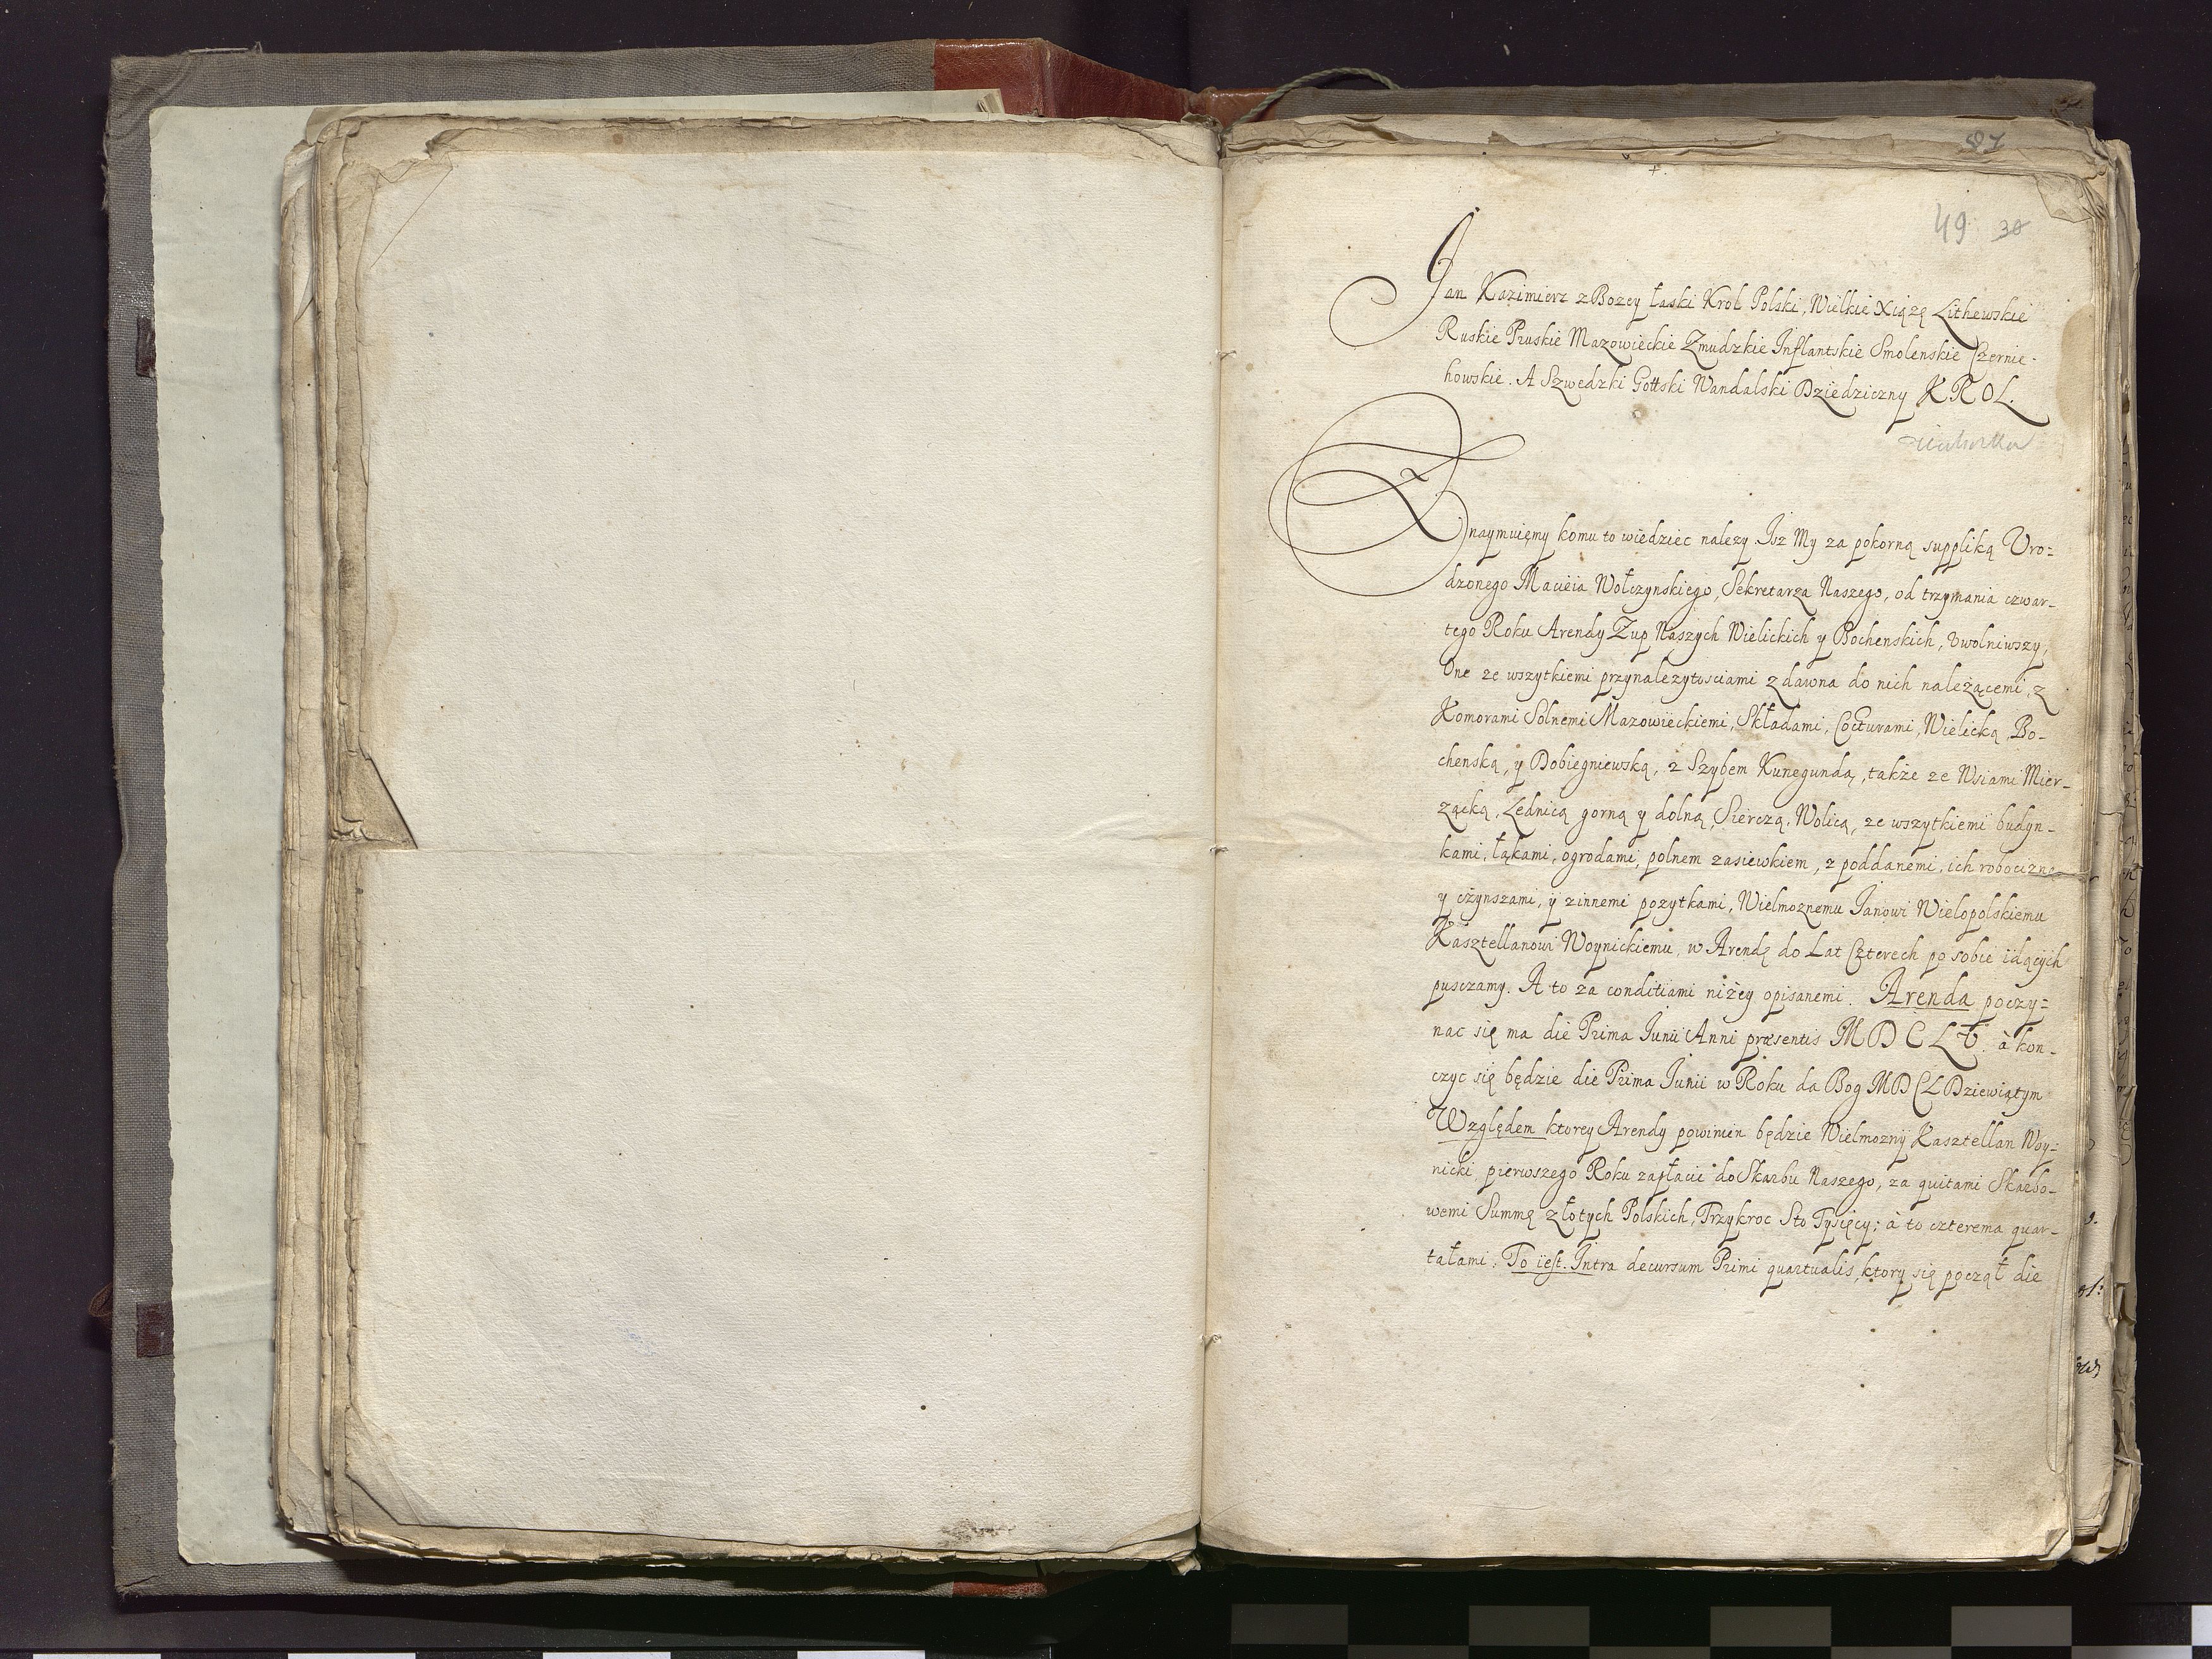 87
49 30
Jan Kazimierz z Bozey łaski Krol Polski, Wielkie Xiązę Lithewskie
Ruskie Pruskie Mazowieckie Zmudzkie Inflantskie Smolenskie Czernie-
howskie. A Szwedzki Gottski Wandalski Dziedziczny KROL.
Znaymuięmy komu to wiedziec nalezy. Isz My za pokorną suppliką Vro=
dzonego Macieia Wołczynskiego, Sekretarza Naszego, od trzymania czwar-
tego Roku Arendy Zup Naszych Wielickich y Bochenskich, Vwolniwszy,
One ze wszytkiemi przynalezytosciami zdawna do nich należącemi, z
Komorami Solnemi Mazowieckiemi, Składami, Cocturami, Wielicką Bo-
chenską, y Dobiegniewską, z Szybem Kunegundą, także ze Wsiami Mier-
ząCką, Lednicą gorną y dolną, Sierczą, Wolicą, ze wszytkiemi budyn-
kami, łąkami, ogrodami, polnem zasiewkiem, z poddanemi, ich robocizną
y czynszami, y zinnemi pozytkami, Wielmoznemu Janowi Wielopolskiemu
Kasztellanowi Woynickiemu, w Arendę do Lat Czterech po sobie idących
pusczamy. A to za conditiami niżey opisanemi. Arenda poczy=
nac się ma die Prima Junii Anni præsentis MDCLV. à kon-
czyc się będzie die Prima Junii w Roku da Bog MDCLDziewiątym
Względem ktorey Arendy powinien będzie Wielmozny Kasztellan Woy=
nicki pierwszego Roku zapłacić do Skarbu Naszego, za quitami Skarbo-
wemi Summę złotych Polskich, Trzykroc Sto Tysięcy; à to czterema quar-
tałami. To iest. Intra decursum Primi quartualis, ktory się począł die